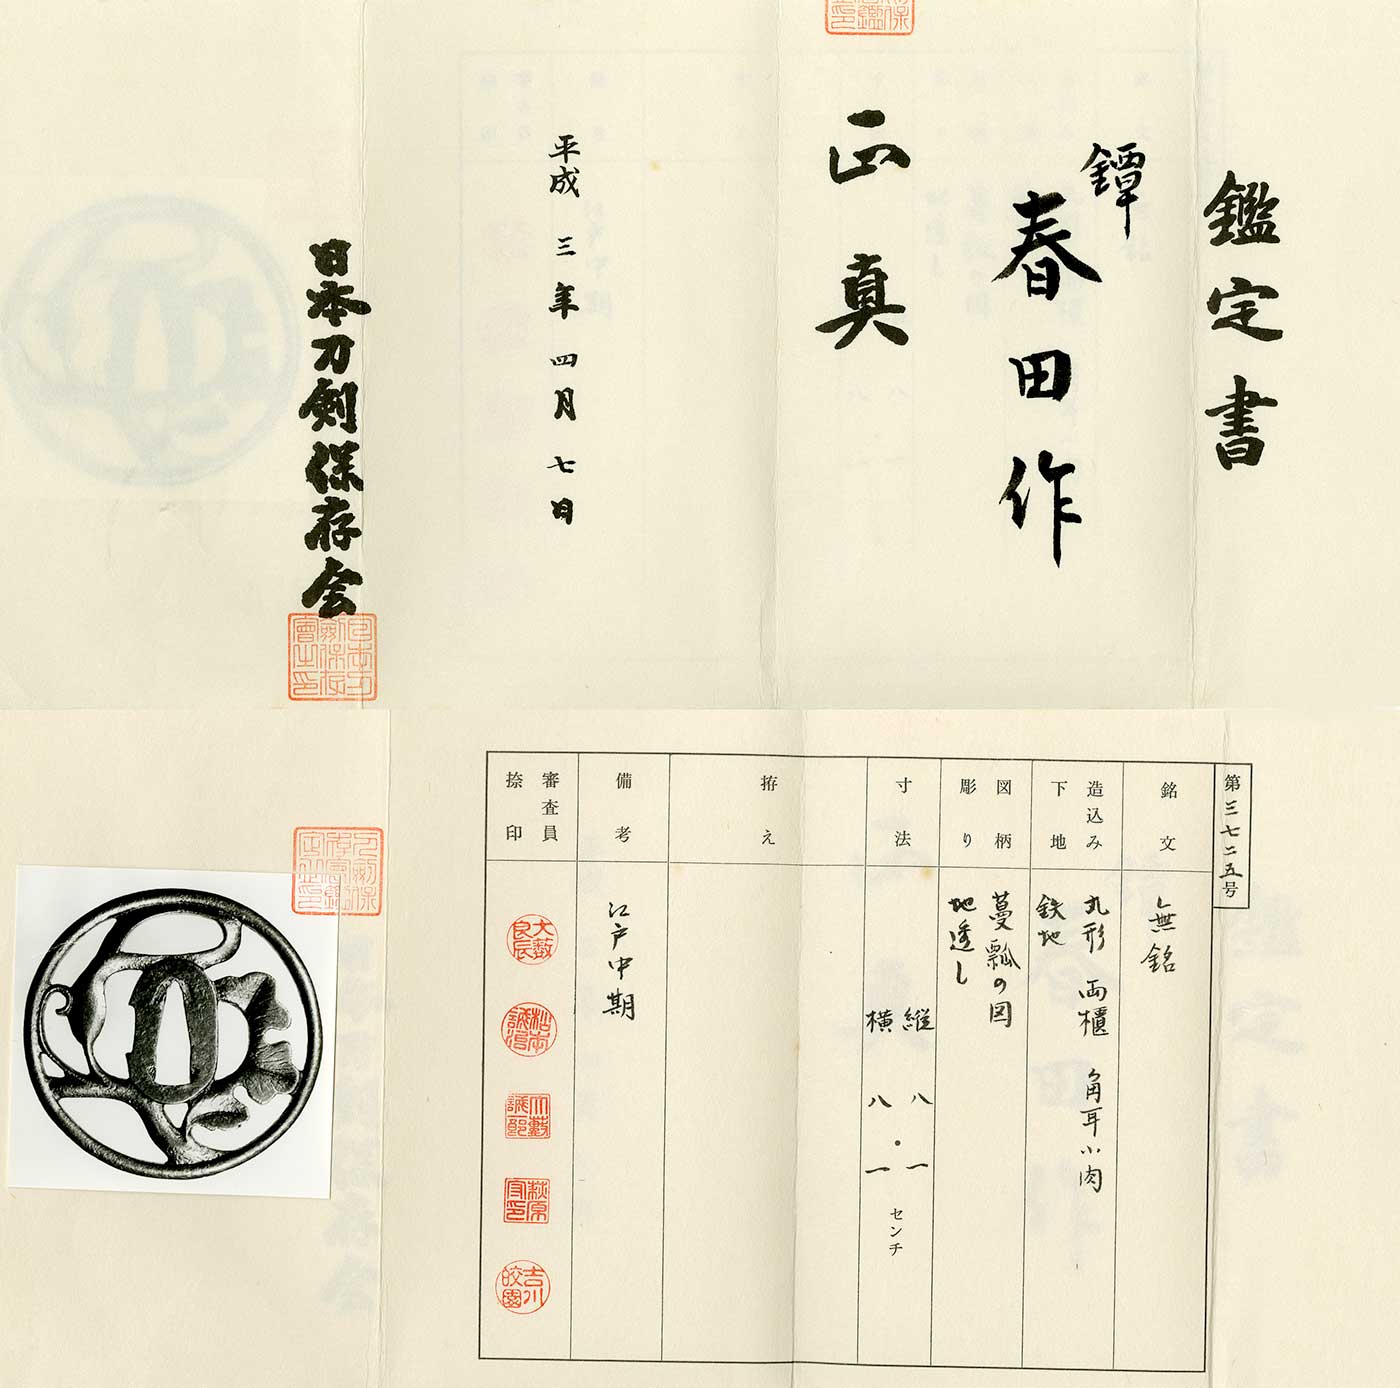 鑑定書
鐔
春田作
正真
平成三年四月七日
日本刀剣保存会
第三七二五号
銘文
無銘
造込み
下地
丸形 両櫃 角耳小肉
鉄地
図柄
彫り
蔓瓢の図
地透し
寸法
縦 八・一
横 八・一
センチ
拵え
備考
江戸中期
審査員
捺印